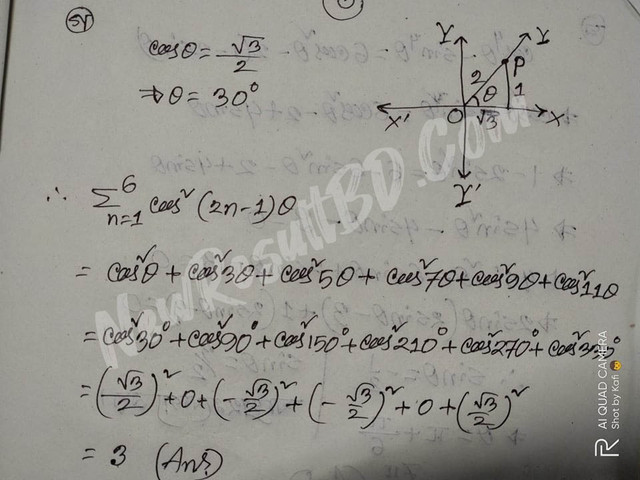 cosθ = √3/2
⇒ θ = 30°
Y
Y
2
P
θ
1
X'
O
√3
X
Y'
∴ Σ⁶ₙ₌₁ cos² (2n-1)θ
= cos²θ + cos²3θ + cos²5θ + cos²7θ + cos²9θ + cos²11θ
= cos²30° + cos²90° + cos²150° + cos²210° + cos²270° + cos²330°
= (√3/2)² + 0 + (-√3/2)² + (-√3/2)² + 0 + (√3/2)²
= 3 (Ans)
NewResultBD.Com
AI QUAD CAMERA
Shot by Kafi